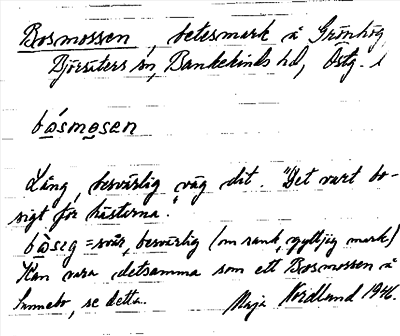 Bosmossen, betesmark å Grönhög
Björsäters sn, Bankekinds hd, Östg. l
bo̱smo̱sen
Lång, besvärlig väg dit. "Det vart bo-
sigt för hästarna."
bo̱seg = svår, besvärlig (om sank, gyttjig mark)
Kan vara detsamma som ett Bosmossen å
Sunnebo, se detta.
Maja Nordlund 1946.